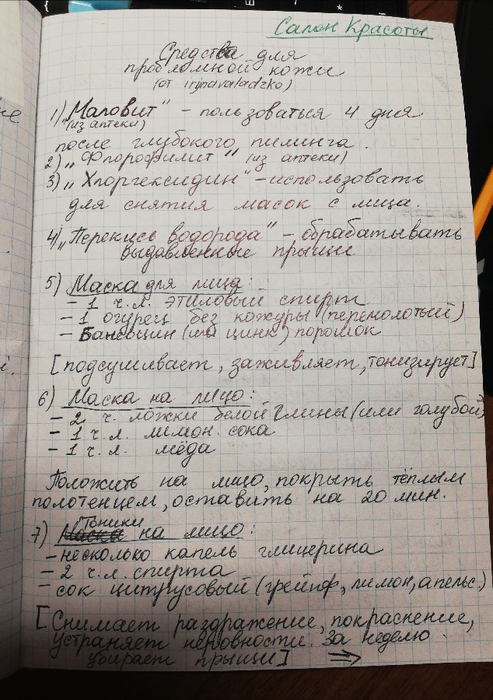 Салон Красоты
Средства для
проблемной кожи
(от irynavaladzko)
1) „Маловит" – пользоваться 4 дня
(из аптеки)
после глубокого пилинга.
2) „Флорофилипт" (из аптеки)
3) „Хлоргексидин" – использовать
для снятия масок с лица.
4) „Перекись водорода" – обрабатывать
выдавленные прыщи
5) Маска для лица:
– 1 ч.л. этиловый спирт
– 1 огурец без кожуры (перемолотый)
– Банеоцин (или цинк) порошок
[подсушивает, заживляет, тонизирует]
6) Маска на лицо:
– 2 ч. ложки белой глины (или голубой)
– 1 ч.л. лимон. сока
– 1 ч.л. мёда
Положить на лицо, покрыть тёплым
полотенцем, оставить на 20 мин.
7) Тоники на лицо:
– несколько капель глицерина
– 2 ч.л. спирта
– сок цитрусовый (грейпф, лимон, апельс.)
[Снимает раздражение, покраснение,
устраняет неровности. За неделю
убирает прыщи] ⇒